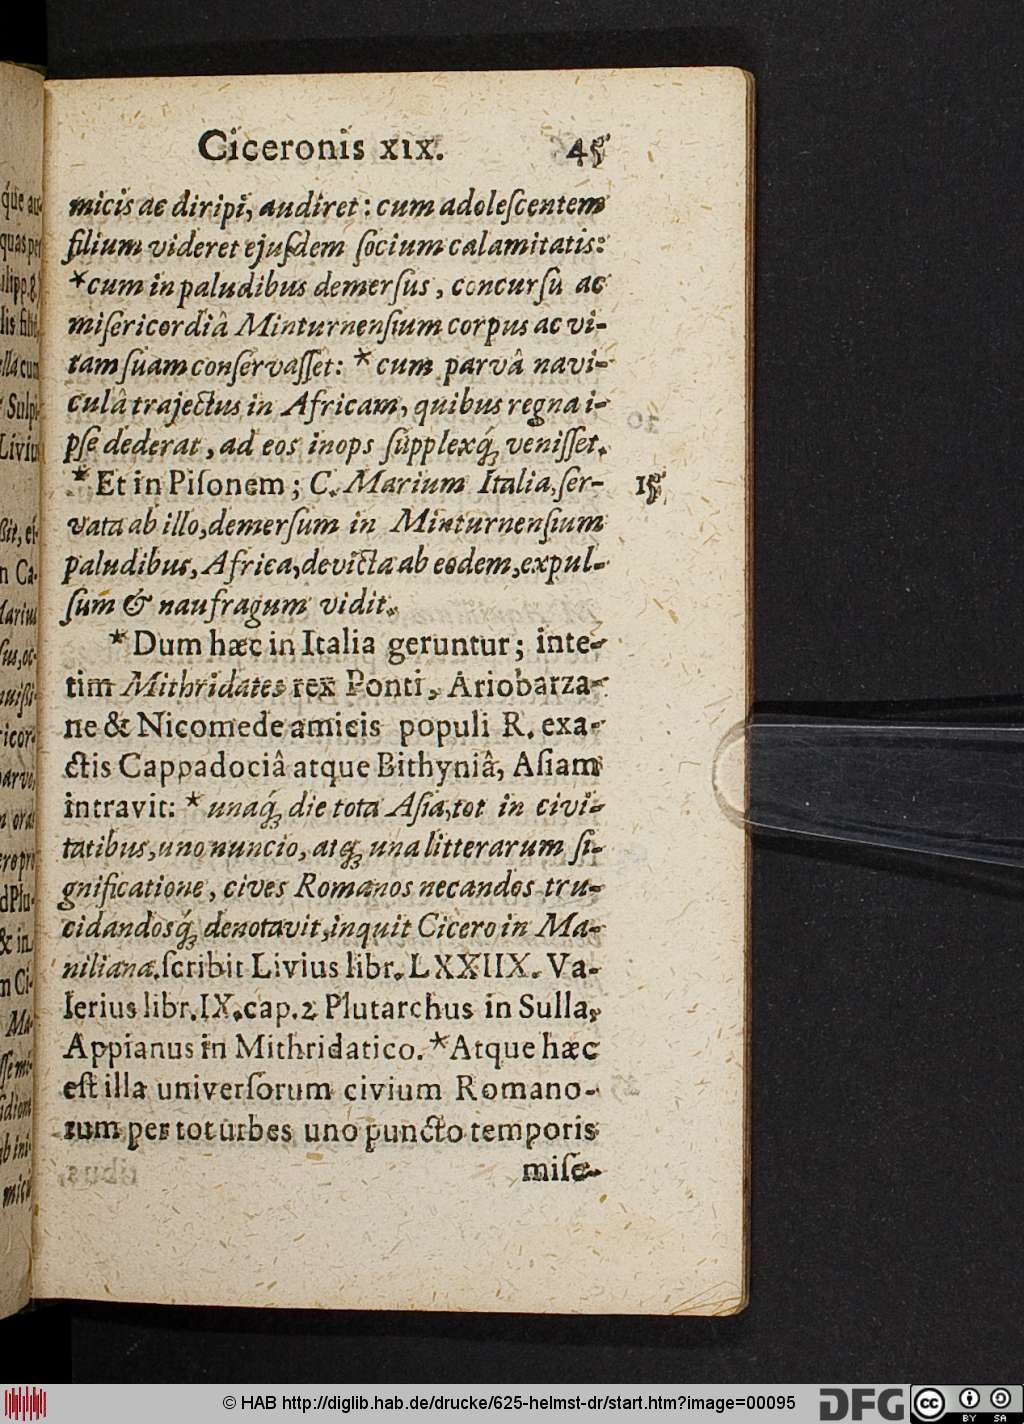 Ciceronis XIX. 45
micis ac diripi, audiret: cum adoleſcentem
filium videret ejuſdem ſocium calamitatis:
*cum in paludibus demerſus, concurſu ac
miſericordiâ Minturnenſium corpus ac vi-
tam ſuam conſervaſſet: * cum parvâ navi-
culâ trajectus in Africam, quibus regna i-
pſe dederat, ad eos inops ſupplexq́; veniſſet.
* Et in Piſonem; C. Marium Italia, ſer- 15
vata ab illo, demerſum in Minturnenſium
paludibus, Africa, devicta ab eodem, expul-
ſum & naufragum vidit.
* Dum hæc in Italia geruntur; inte-
tim Mithridates rex Ponti, Ariobarza-
ne & Nicomede amicis populi R. exa-
ctis Cappadociâ atque Bithyniâ, Aſiam
intravit: * unaq́; die tota Aſia, tot in civi-
tatibus, uno nuncio, atq; una litterarum ſi-
gnificatione, cives Romanos necandos tru-
cidandosq́; denotavit, inquit Cicero in Ma-
niliana. ſcribit Livius libr. LXXIIX. Va-
lerius libr. IX. cap. 2 Plutarchus in Sulla,
Appianus in Mithridatico. * Atque hæc
eſt illa univerſorum civium Romano-
rum per tot urbes uno puncto temporis
miſe-
© HAB http://diglib.hab.de/drucke/625-helmst-dr/start.htm?image=00095
DFG
cc BY SA